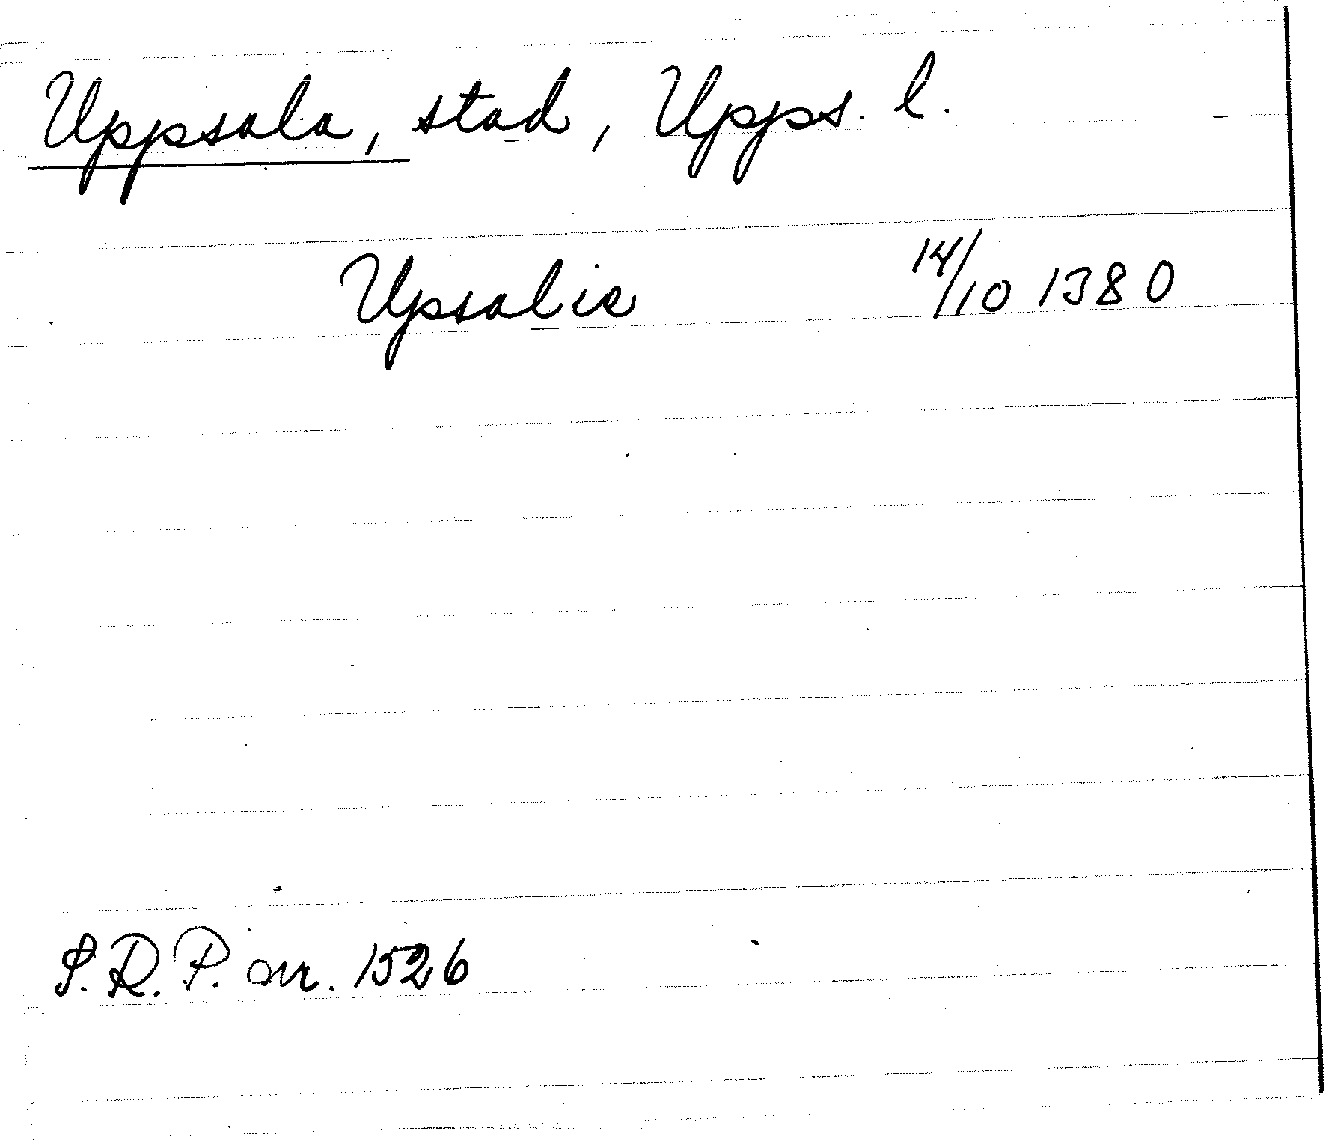 Uppsala, stad, Upps. l.
Upsalie 14/10 1380
S.R.P. nr. 1526